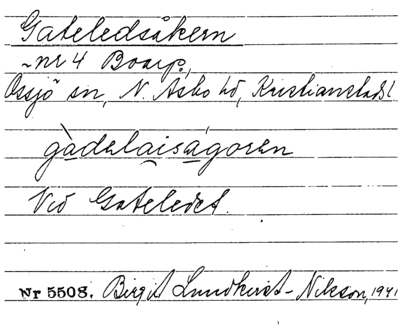 Gateledsåkern
~nr 4 Boarp.,
Össjö sn, N. Åsbo hd, Kristianstads l
gàdəlaiság͡oren
Vid Gateledet.
Nr 5508. Birgit Lundkvist-Nilsson, 1941